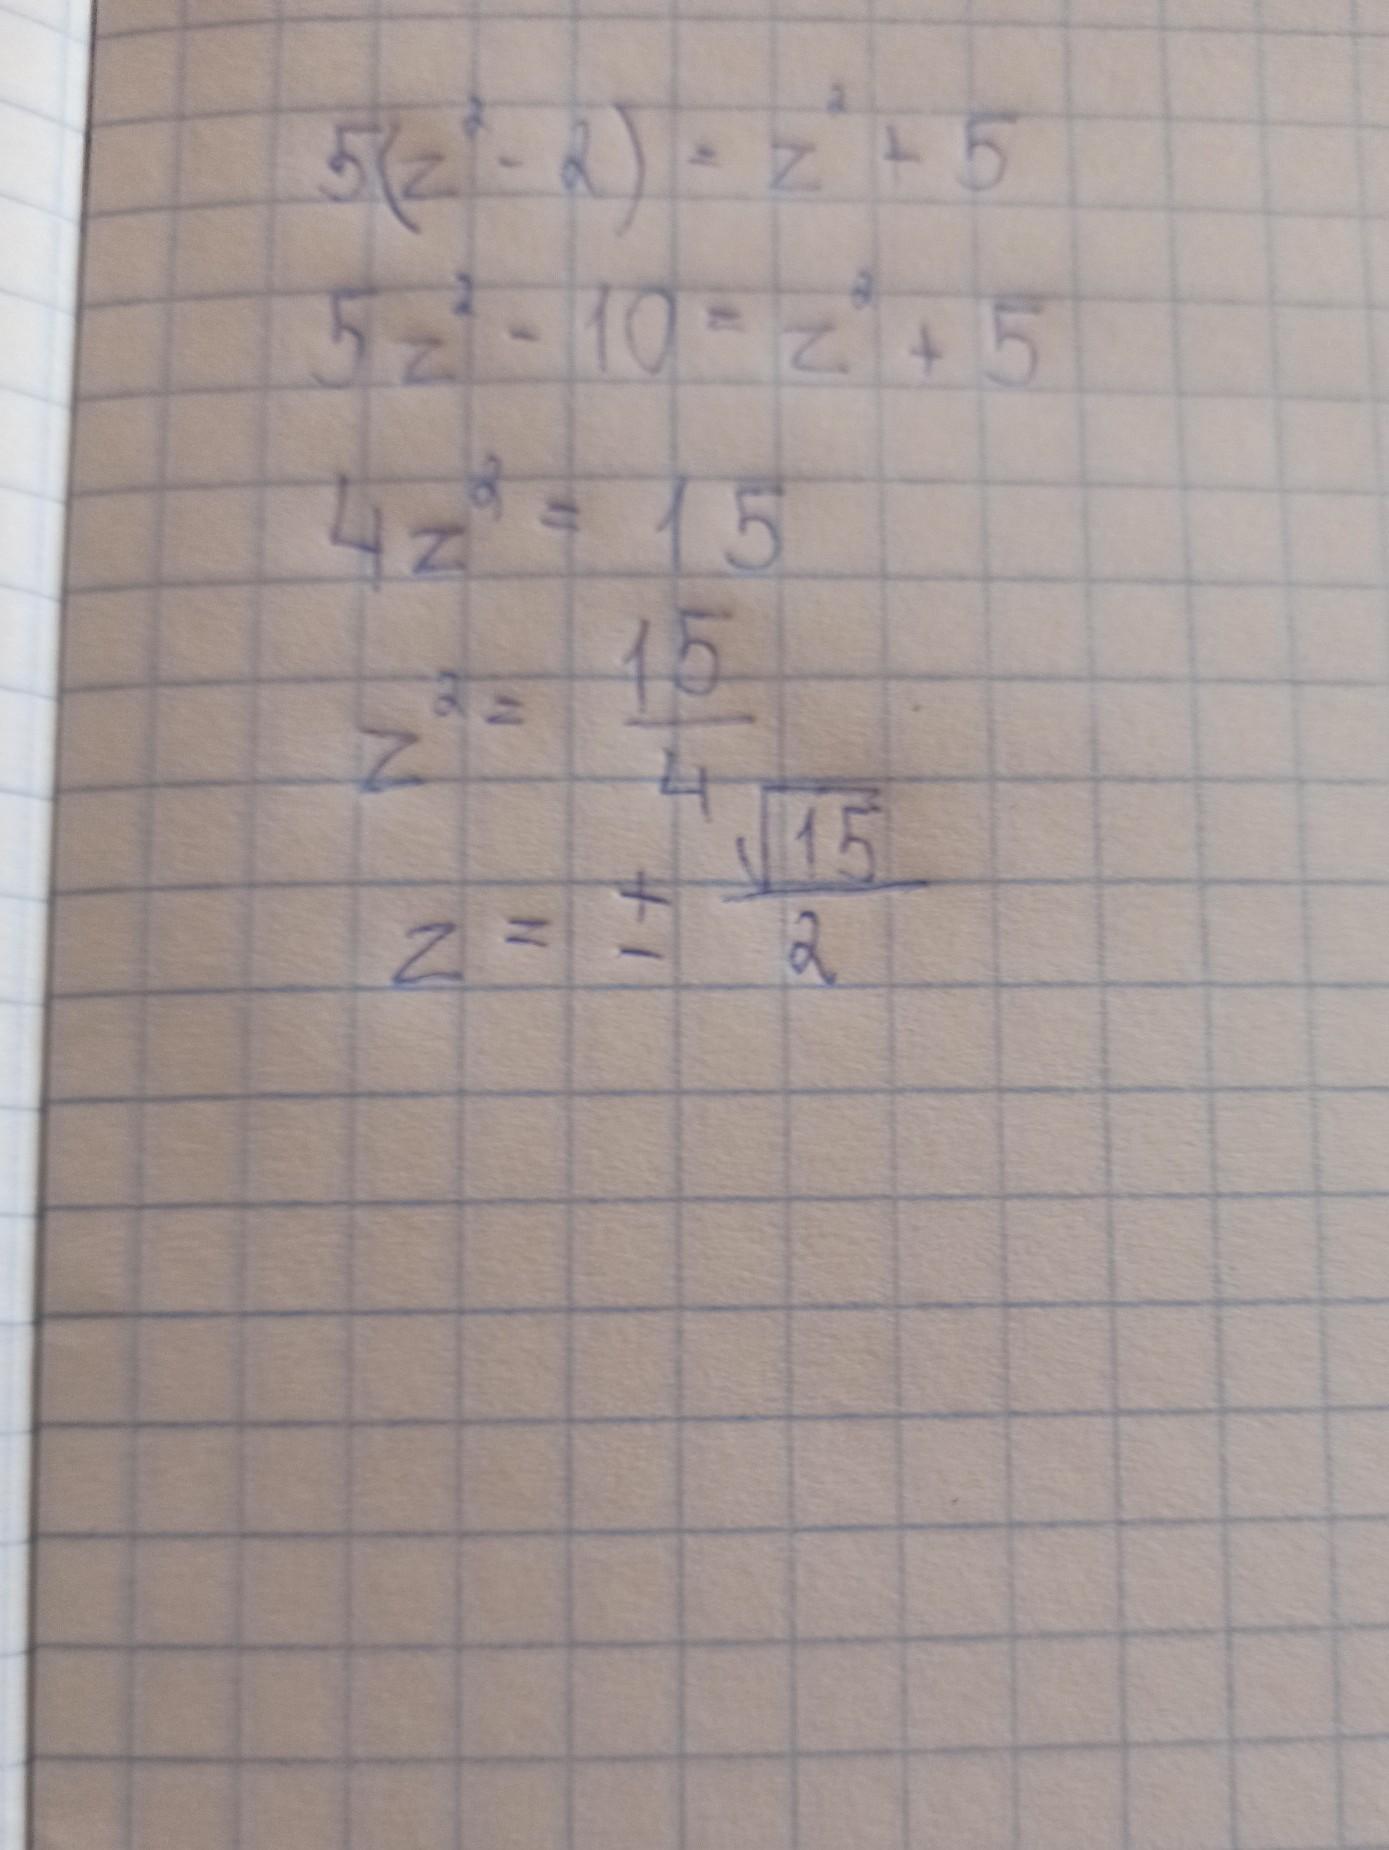 5(z² - 2) = z² + 5
5z² - 10 = z² + 5
4z² = 15
z² = 15/4
z = ± √15/2